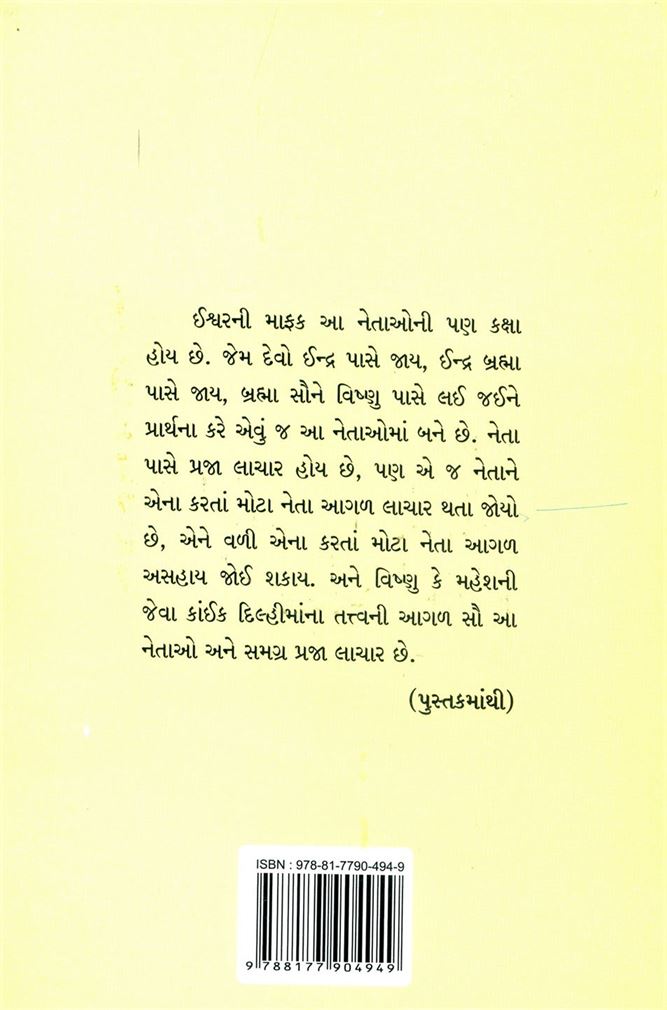 ઈશ્વરની માફક આ નેતાઓની પણ કક્ષા
હોય છે. જેમ દેવો ઈન્દ્ર પાસે જાય, ઈન્દ્ર બ્રહ્મા
પાસે જાય, બ્રહ્મા સૌને વિષ્ણુ પાસે લઈ જઈને
પ્રાર્થના કરે એવું જ આ નેતાઓમાં બને છે. નેતા
પાસે પ્રજા લાચાર હોય છે, પણ એ જ નેતાને
એના કરતાં મોટા નેતા આગળ લાચાર થતા જોયો
છે, એને વળી એના કરતાં મોટા નેતા આગળ
અસહાય જોઈ શકાય. અને વિષ્ણુ કે મહેશની
જેવા કાંઈક દિલ્હીમાંના તત્ત્વની આગળ સૌ આ
નેતાઓ અને સમગ્ર પ્રજા લાચાર છે.
(પુસ્તકમાંથી)
ISBN : 978-81-7790-494-9
9 788177 904949